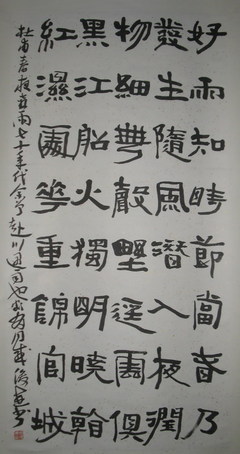 好雨知時節當春乃
發生隨風潛入潤
物細無聲野徑雲俱
黑江船火獨明曉看
紅濕處花重錦官城
杜甫春夜喜雨七十年代余曾赴川